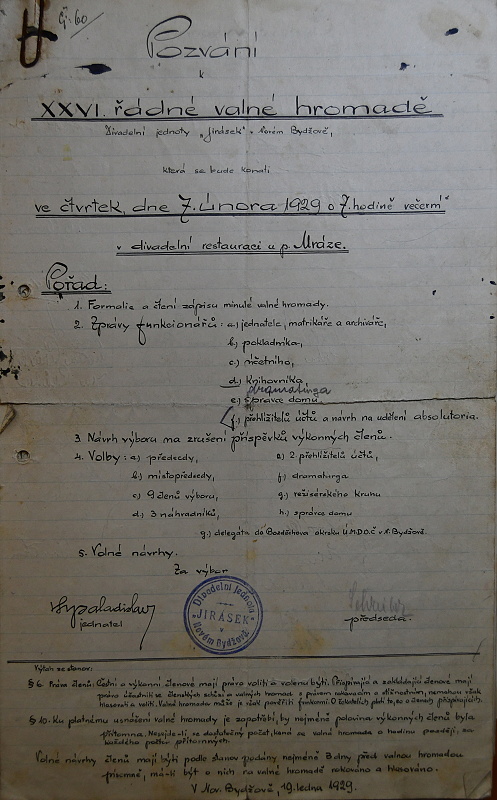 Čj. 60
Pozvání
k
XXVI. řádné valné hromadě
Divadelní jednoty „Jirásek" v Novém Bydžově,
která se bude konati
ve čtvrtek, dne 7. února 1929 o 7. hodině večerní
v divadelní restauraci u p. Mráze.
Pořad:
1. Formalie a čtení zápisu minulé valné hromady.
2. Zprávy funkcionářů: a.) jednatele, matrikáře a archiváře,
b.) pokladníka,
c.) účetního,
d.) knihovníka,
dramaturga
e.) správce domu,
f.) přehlížitelů účtů a návrh na udělení absolutoria.
3 Návrh výboru na zrušení příspěvků výkonných členů.
4. Volby: a) předsedy, e) 2 přehlížitelů účtů,
b.) místopředsedy, f.) dramaturga
c) 9 členů výboru, g.) režisérského kruhu
d.) 3 náhradníků, h.) správce domu
g.) delegáta do Bozděchova okrsku Ú.M.D.O.Č v N. Bydžově.
5. Volné návrhy.
Za výbor
jednatel předseda.
Divadelní Jednota
„JIRÁSEK"
v Novém Bydžově
Výtah ze stanov:
§ 6. Práva členů: Čestní a výkonní členové mají právo voliti a voleni býti. Přispívající a zakládající členové mají
právo účastniti se členských schůzí a valných hromad s právem rokovacím a stížnostním, nemohou však
hlasovati a voliti. Valná hromada může je však pověřiti funkcemi.
§ 10. Ku platnému usnášení valné hromady je zapotřebí, by nejméně polovina výkonných členů byla
přítomna. Nesejde-li se dostatečný počet, koná se valná hromada o hodinu později, za
každého počtu přítomných.
Volné návrhy členů mají býti podle stanov podány nejméně 3 dny před valnou hromadou
písemně, má-li býti o nich na valné hromadě rokováno a hlasováno.
V Nov. Bydžově, 19. ledna 1929.